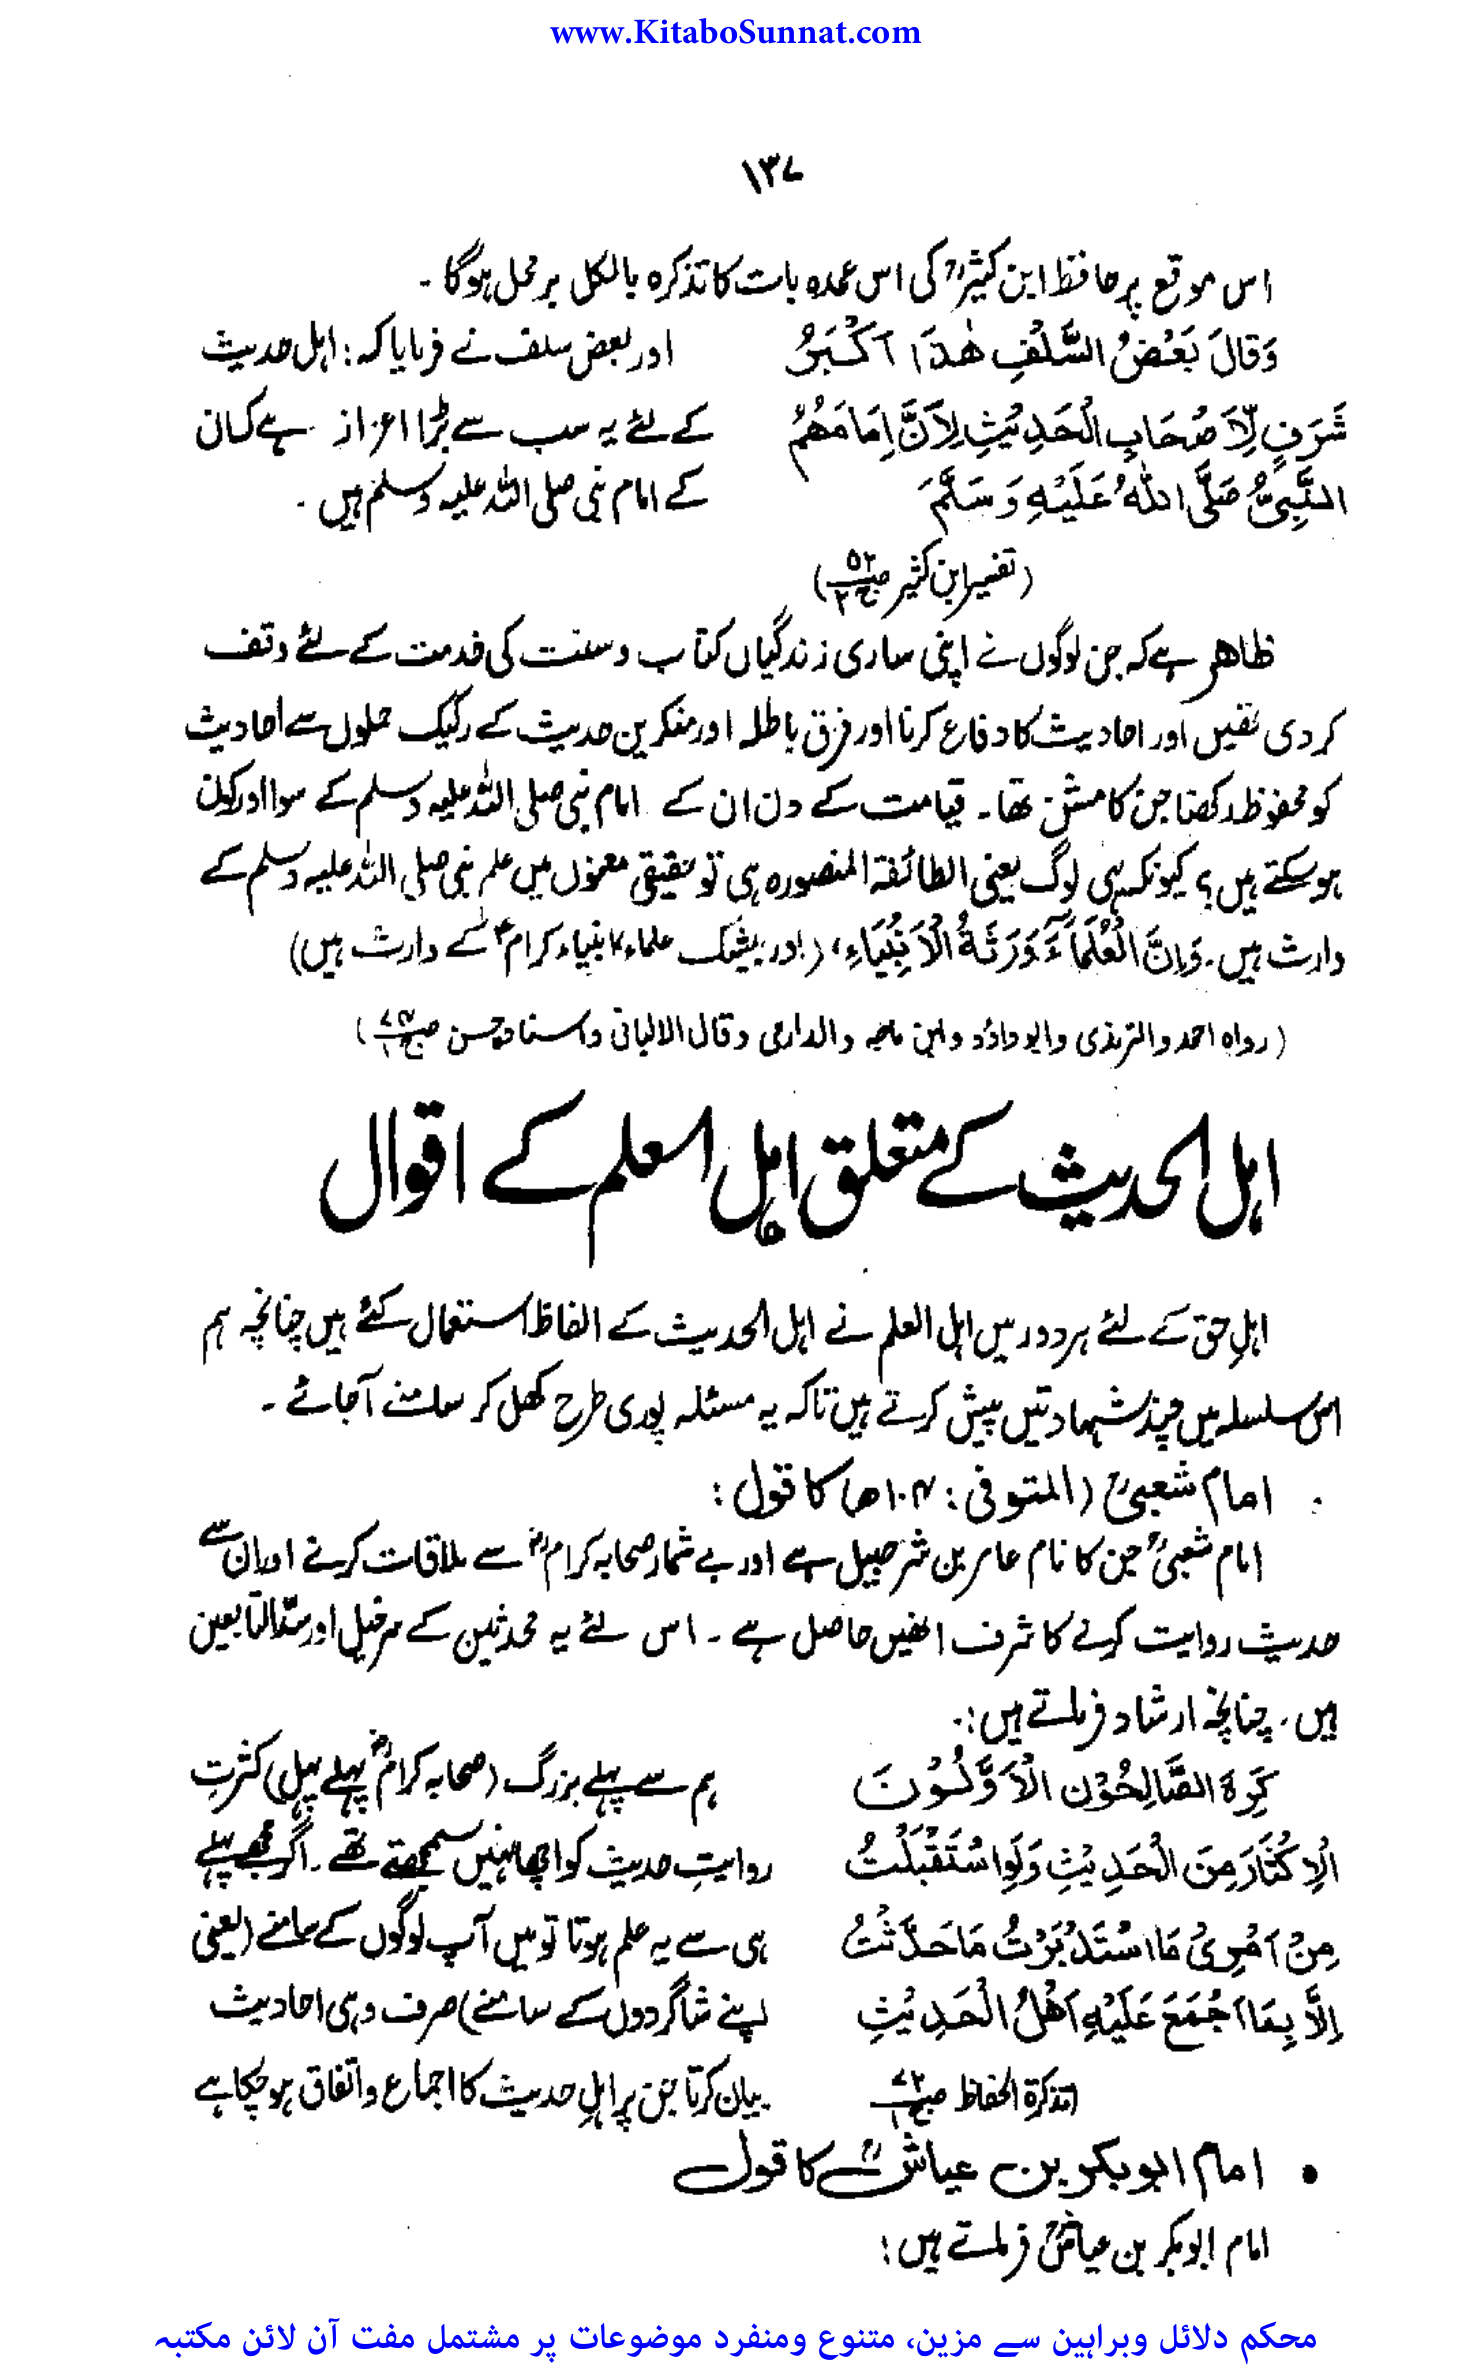 www.KitaboSunnat.com
۱۳۷
اس موقع پر حافظ ابن کثیرؒ کی اس عمدہ بات کا تذکرہ بالکل برمحل ہوگا ۔
وَقَالَ بَعْضُ السَّلْفِ هٰذَا اَكْبَرُ
شَرَفٍ لِّاَصْحَابِ الْحَدِيْثِ لِاَنَّ اِمَامَهُمُ
النَّبِيُّ صَلَّى اللهُ عَلَيْهِ وَسَلَّمَ
اور بعض سلف نے فرمایا کہ: اہل حدیث
کے لئے یہ سب سے بڑا اعزاز ہے کہ ان
کے امام نبی صلی اللہ علیہ وسلم ہیں ۔
(تفسیر ابن کثیر ص۵۲ ج۲)
ظاھر ہے کہ جن لوگوں نے اپنی ساری زندگیاں کتاب وسنت کی خدمت کے لئے وقف
کر دی تھیں اور احادیث کا دفاع کرنا اور فرق باطلہ اور منکرین حدیث کے رکیک حملوں سے احادیث
کو محفوظ رکھنا جن کا مشن تھا۔ قیامت کے دن ان کے امام نبی صلی اللہ علیہ وسلم کے سوا اور کون
ہو سکتے ہیں؟ کیونکہ یہی لوگ یعنی الطائفۃ المنصورہ ہی تو حقیقی معنوں میں علم نبی صلی اللہ علیہ وسلم کے
وارث ہیں۔ وَاِنَّ الْعُلَمَآءَ وَرَثَةُ الْاَنْبِيَاءِ، (اور بیشک علماء انبیاء کرامؑ کے وارث ہیں)
(رواہ احمد والترمذی وابوداؤد وابن ماجہ والدارمی وقال الالبانی واسنادہ حسن ص۷۴ ج۱)
اہل الحدیث کے متعلق اہل العلم کے اقوال
اہلِ حق کے لئے ہر دور میں اہل العلم نے اہل الحدیث کے الفاظ استعمال کئے ہیں چنانچہ ہم
اس سلسلہ میں چند شہادتیں پیش کرتے ہیں تاکہ یہ مسئلہ پوری طرح کھل کر سامنے آجائے ۔
امام شعبیؒ (المتوفی: ۱۰۴ھ) کا قول :
امام شعبیؒ جن کا نام عامر بن شرحبیل ہے اور بے شمار صحابہ کرامؓ سے ملاقات کرنے اور ان سے
حدیث روایت کرنے کا شرف انھیں حاصل ہے ۔ اس لئے یہ محدثین کے سرخیل اور سیّد التابعین
ہیں۔ چنانچہ ارشاد فرماتے ہیں:۔
كَرِهَ الصَّالِحُوْنَ الْاَوَّلُوْنَ
الْاِكْثَارَ مِنَ الْحَدِيْثِ وَلَوِ اسْتَقْبَلْتُ
مِنْ اَمْرِيْ مَا اسْتَدْبَرْتُ مَا حَدَّثْتُ
اِلَّا بِمَا اَجْمَعَ عَلَيْهِ اَهْلُ الْحَدِيْثِ
(تذکرۃ الحفاظ ص۷۲ ج۱)
ہم سے پہلے بزرگ (صحابہ کرامؓ پہلے پہل) کثرتِ
روایتِ حدیث کو اچھا نہیں سمجھتے تھے۔ اگر مجھے پہلے
ہی سے یہ علم ہوتا تو میں آپ لوگوں کے سامنے (یعنی
اپنے شاگردوں کے سامنے) صرف وہی احادیث
بیان کرتا جن پر اہلِ حدیث کا اجماع واتفاق ہو چکا ہے
• امام ابوبکر بن عیاشؒ کا قول
امام ابوبکر بن عیاشؒ فرماتے ہیں:
محکم دلائل وبراہین سے مزین، متنوع ومنفرد موضوعات پر مشتمل مفت آن لائن مکتبہ